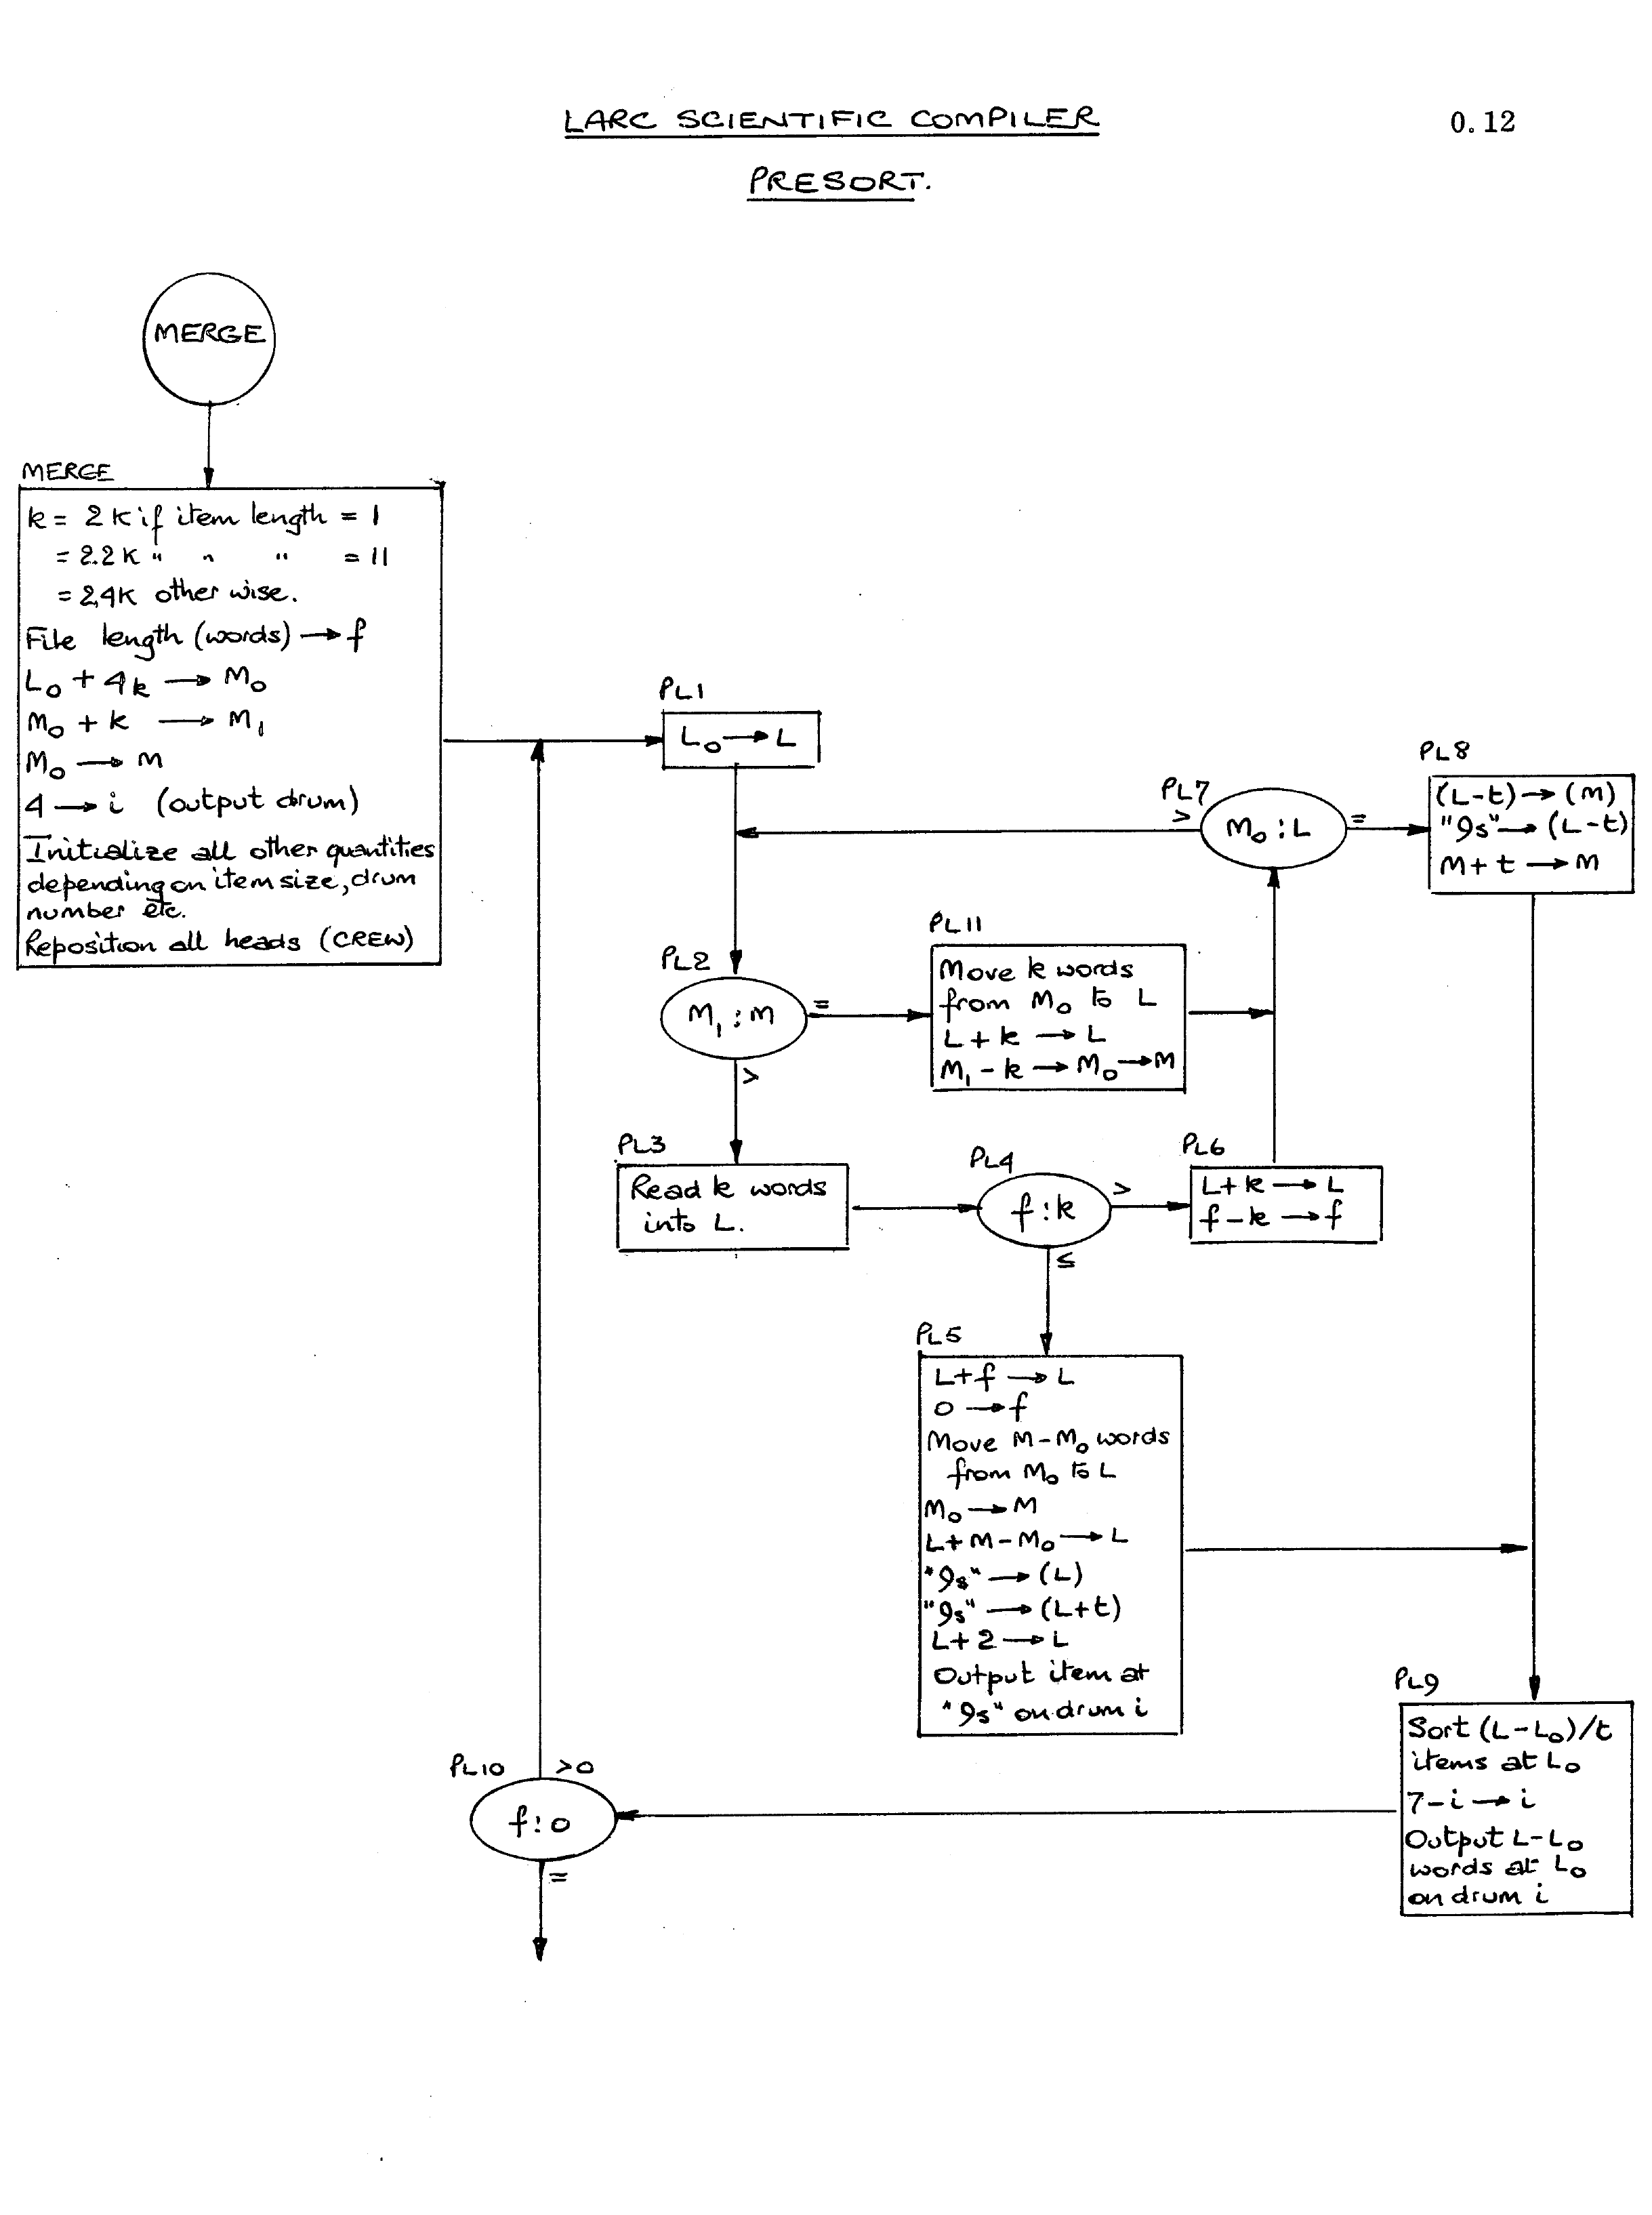 LARC SCIENTIFIC COMPILER
0.12
PRESORT.
MERGE
MERGE
k = 2K if item length = 1
= 2.2K " " " = 11
= 2.4K other wise.
File length (words) → f
L₀ + 4k → M₀
M₀ + k → M₁
M₀ → m
4 → i (output drum)
Initialize all other quantities
depending on item size, drum
number etc.
Reposition all heads (CREW)
PL1
L₀ → L
PL7
>
M₀ : L
=
PL8
(L-t) → (M)
"9s" → (L-t)
M + t → M
PL2
M₁ : M
=
>
PL11
Move k words
from M₀ to L
L + k → L
M₁ - k → M₀ → M
PL3
Read k words
into L.
PL4
f : k
>
≤
PL6
L + k → L
f - k → f
PL5
L + f → L
0 → f
Move M - M₀ words
from M₀ to L
M₀ → M
L + M - M₀ → L
"9s" → (L)
"9s" → (L+t)
L + 2 → L
Output item at
"9s" on drum i
PL9
Sort (L-L₀)/t
items at L₀
7-i → i
Output L-L₀
words at L₀
on drum i
PL10
>0
f : 0
=